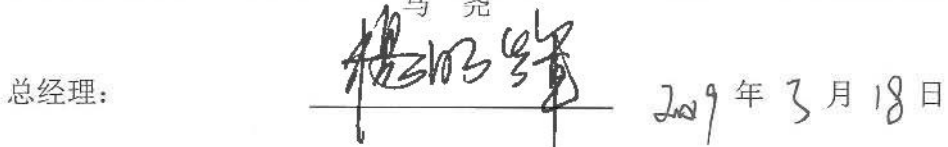 马 尧
总经理: 杨明辉 2019 年 3 月 18 日